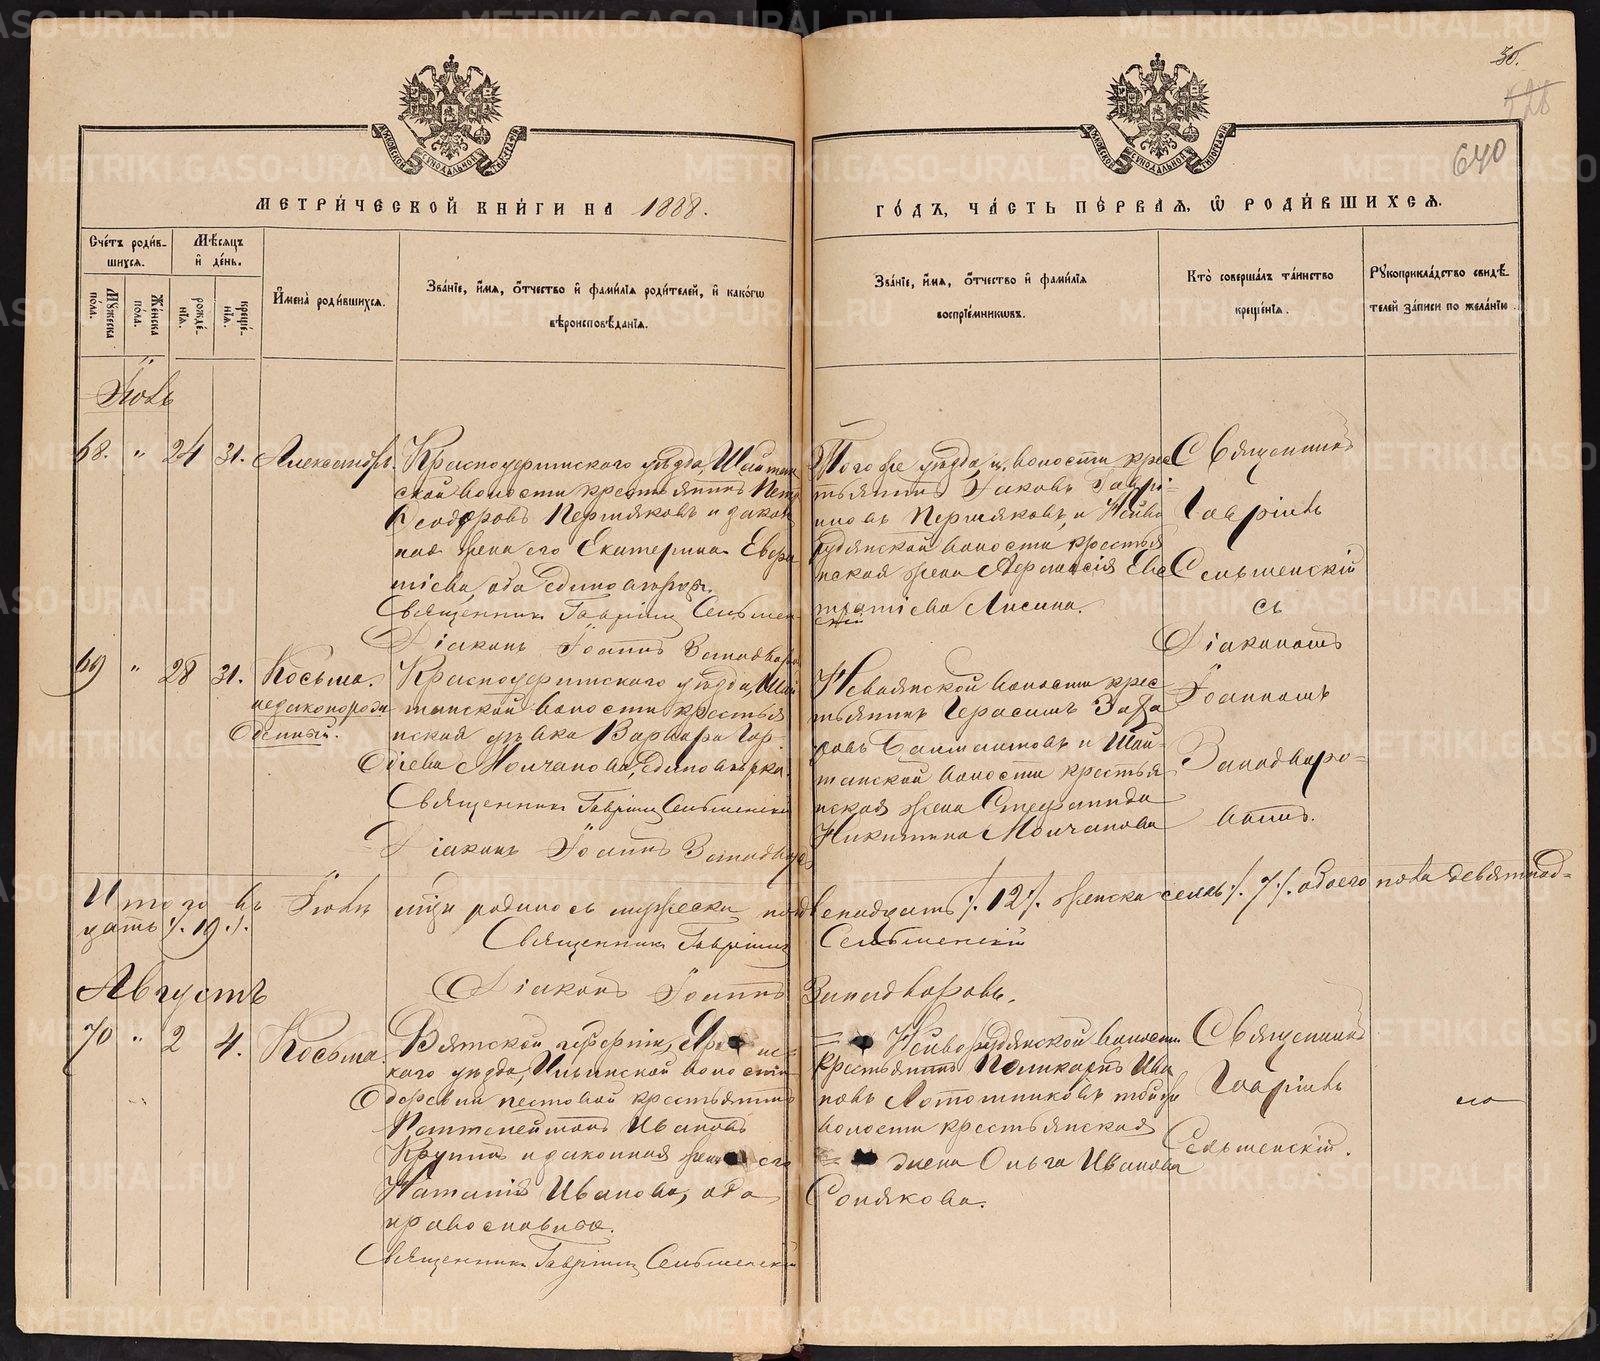 30.
528
640
МЕТРИ́ЧЕСКОЙ КНИ́ГИ НА 1888.
ГО́ДЪ, ЧА́СТЬ ПЕ́РВАѦ, Ѽ РОДИ́ВШИХСѦ.
Сче́тъ роди́в-
шихсѧ.
Мѣ́сѧцъ
и҆ де́нь.
Му́жеска
по́ла.
Же́нска
по́ла.
рожде́-
нїѧ.
креще́-
нїѧ.
И҆мена̀ роди́вшихсѧ.
Зва́нїе, и҆́мѧ, ѻ҆́тчество и҆ фами́лїѧ роди́телей, и҆ како́гѡ
вѣроисповѣ́данїѧ.
Зва́нїе, и҆́мѧ, ѻ҆́тчество и҆ фами́лїѧ
воспрїе́мникѡвъ.
Кто̀ соверша́лъ та́инство
креще́нїѧ.
Рꙋкоприкла́дство свидѣ́-
телей за́писи по жела́нїю.
Іюль
68. " 24 31. Александръ.
Красноуфимскаго уѣзда, Шайтан
ской волости крестьянинъ Петр
Ѳеодоровъ Пермяковъ и закон
ная жена его Екатерина Евера
тіева, оба единовѣрцы.
Священникъ Гавріилъ Сельменскій
Діаконъ Іоаннъ Западваров
Того же уѣзда и волости крес
тьянинъ Іаковъ Гаврі-
иловъ Пермяковъ и Нейво
рудянской волости крестья
нская жена Аѳанасія Евс
тратіева Лисина.
Священникъ
Гавріилъ
Сельменскій
съ
Діакономъ
Іоанномъ
Западваро-
вымъ.
69 " 28 31. Косьма.
незаконорож
денный.
Красноуфимскаго уѣзда, Шай
танской волости крестья
нская дѣвка Варвара Гор-
діева Молчанова, единовѣрка.
Священникъ Гавріилъ Сельменскій
Діаконъ Іоаннъ Западваров
Невьянской волости крес
тьянинъ Герасимъ Заха
ровъ и Шай-
танской волости крестья
нская жена Стефанида
Никитина Молчанова
Итого въ Іюлѣ мцѣ родилось мужеска пола двенадцать ./. 12 ./. женска семь ./. 7 ./. обоего пола девятнад-
цать ./. 19 ./.
Священникъ Гавріилъ Сельменскій
Діаконъ Іоаннъ Западваровъ.
Августъ
70 " 2 4. Косьма.
Вятской губерніи, Яранс-
каго уѣзда, Ильинской волости
деревни Пестовой крестьянинъ
Пантелеймонъ Ивановъ
Крупинъ и законная жена его
Наталія Иванова, оба
православные.
Священникъ Гавріилъ Сельменскій
Нейворудянской волости
крестьянинъ Поликарпъ Ива
новъ Лотошниковъ и той же
волости крестьянская
жена Ольга Иванова
Солякова.
Священникъ
Гавріилъ
Сельменскій.